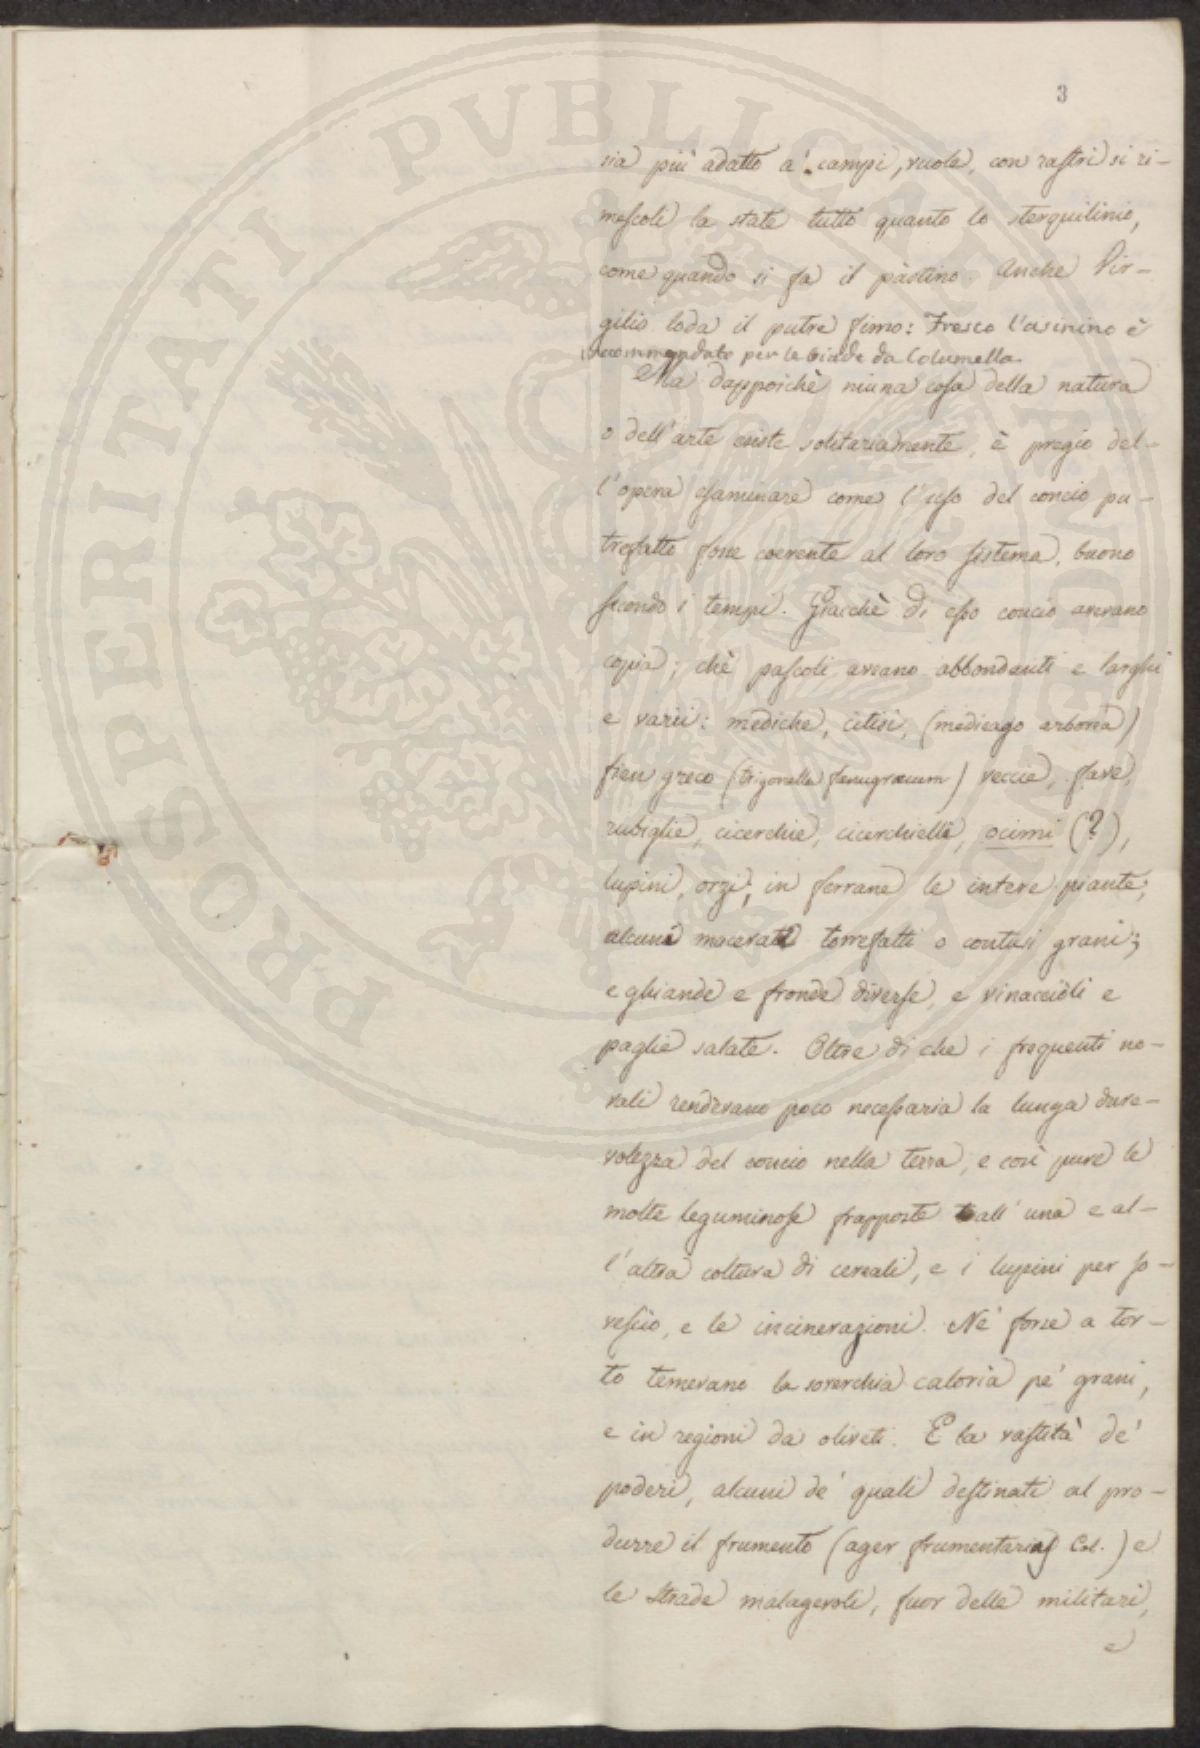 PROSPERITATI PVBLICAE AVGENDAE
3
sia più adatto a' campi, vuole, con rastri si ri-
mescoli la state tutto quanto lo sterquilinio,
come quando si fa il pàstino. Anche Vir-
gilio loda il putre fimo: Fresco l'asinino è
raccommandato per le biade da Columella.
Ma dappoichè niuna cosa della natura
o dell'arte esiste solitariamente, è pregio del-
l'opera esaminare come l'uso del concio pu-
trefatto fosse coerente al loro sistema, buono
secondo i tempi. Giacchè di esso concio avevano
copia; chè pascoli aveano abbondanti e larghi
e varii: mediche, citisi, (medicago arborea)
fien greco (trigonella fenugraecum) veccie, fave,
rubiglie, cicerchie, cicerchielle, ocimi (?),
lupini, orzi; in ferrane le intere piante;
alcuni macerati torrefatti o contusi grani;
e ghiande e fronde diverse, e vinaccioli e
paglie salate. Oltre di che i frequenti no-
vali rendevano poco necessaria la lunga dure-
volezza del concio nella terra, e così pure le
molte leguminose frapposte all'una e al-
l'altra coltura di cereali, e i lupini per so-
vescio, e le incinerazioni. Nè forse a tor-
to temevano la soverchia caloria pe' grani,
e in regioni da oliveti. E la vastità de'
poderi, alcuni de' quali destinati al pro-
durre il frumento (ager frumentarius Col.) e
le strade malagevoli, fuor delle militari,
e